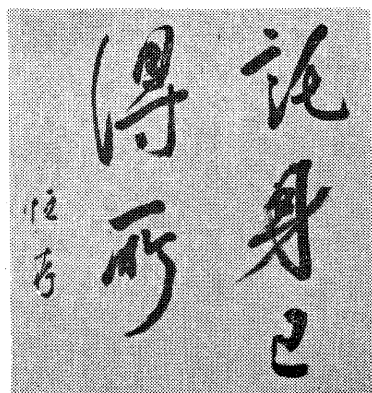 託身已
得所
恒存